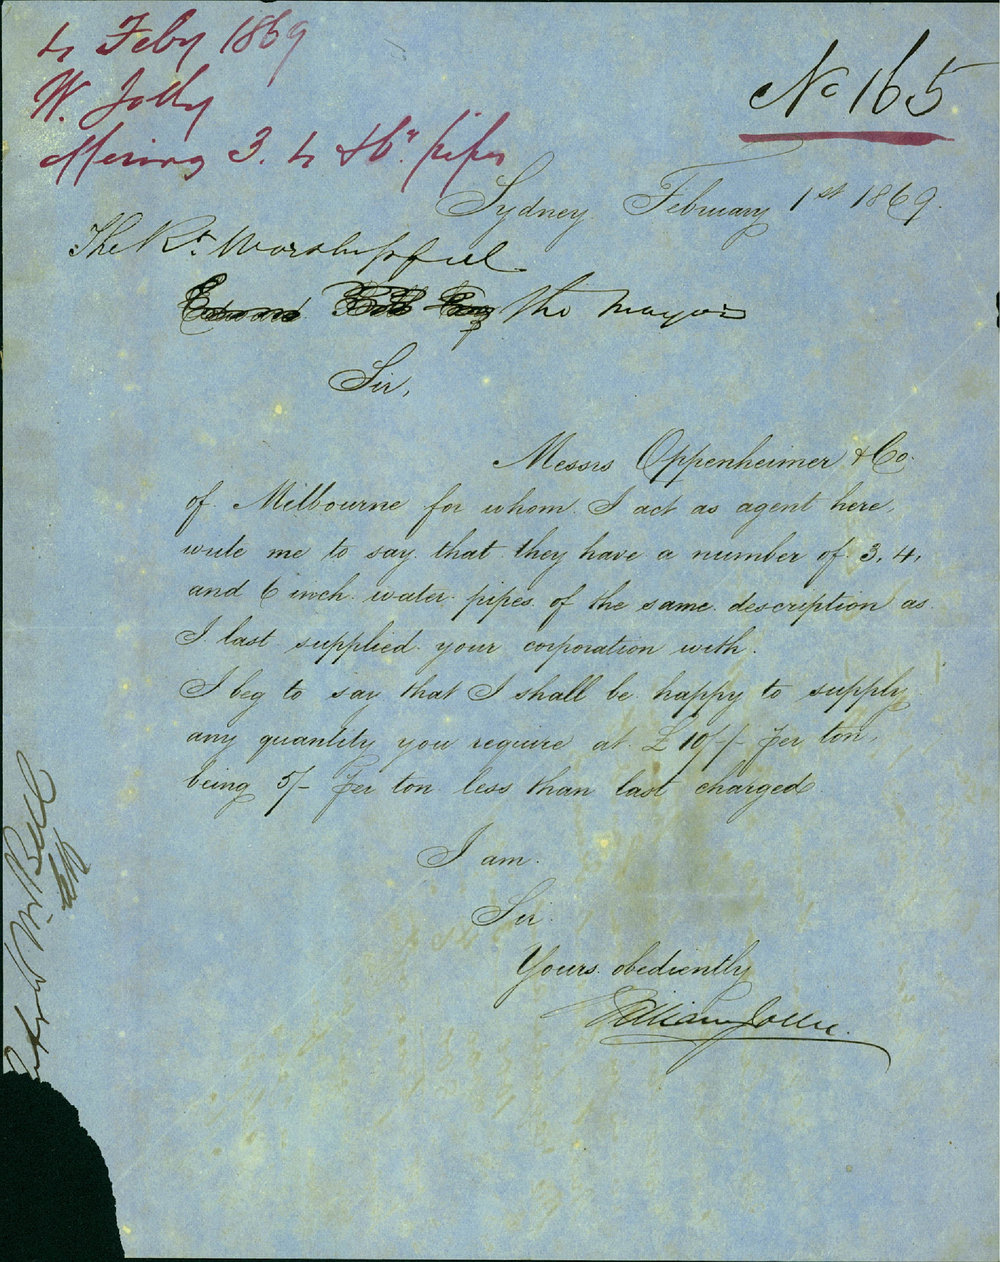 4 Feby 1869
W. Jolly
Offering 3. 4 & 6" pipes
No 165
Sydney February 1st 1869.
The Rt. Worshipful
Edward Bell Esq the Mayor
Sir,
Messrs Oppenheimer & Co.
of Milbourne for whom I act as agent here,
write me to say that they have a number of 3, 4,
and 6 inch water pipes of the same description as
I last supplied your corporation with.
I beg to say that I shall be happy to supply
any quantity you require at £10/-/- per ton,
being 5/- per ton less than last charged
I am
Sir
Yours obediently
William Jollie.
Mr Bell